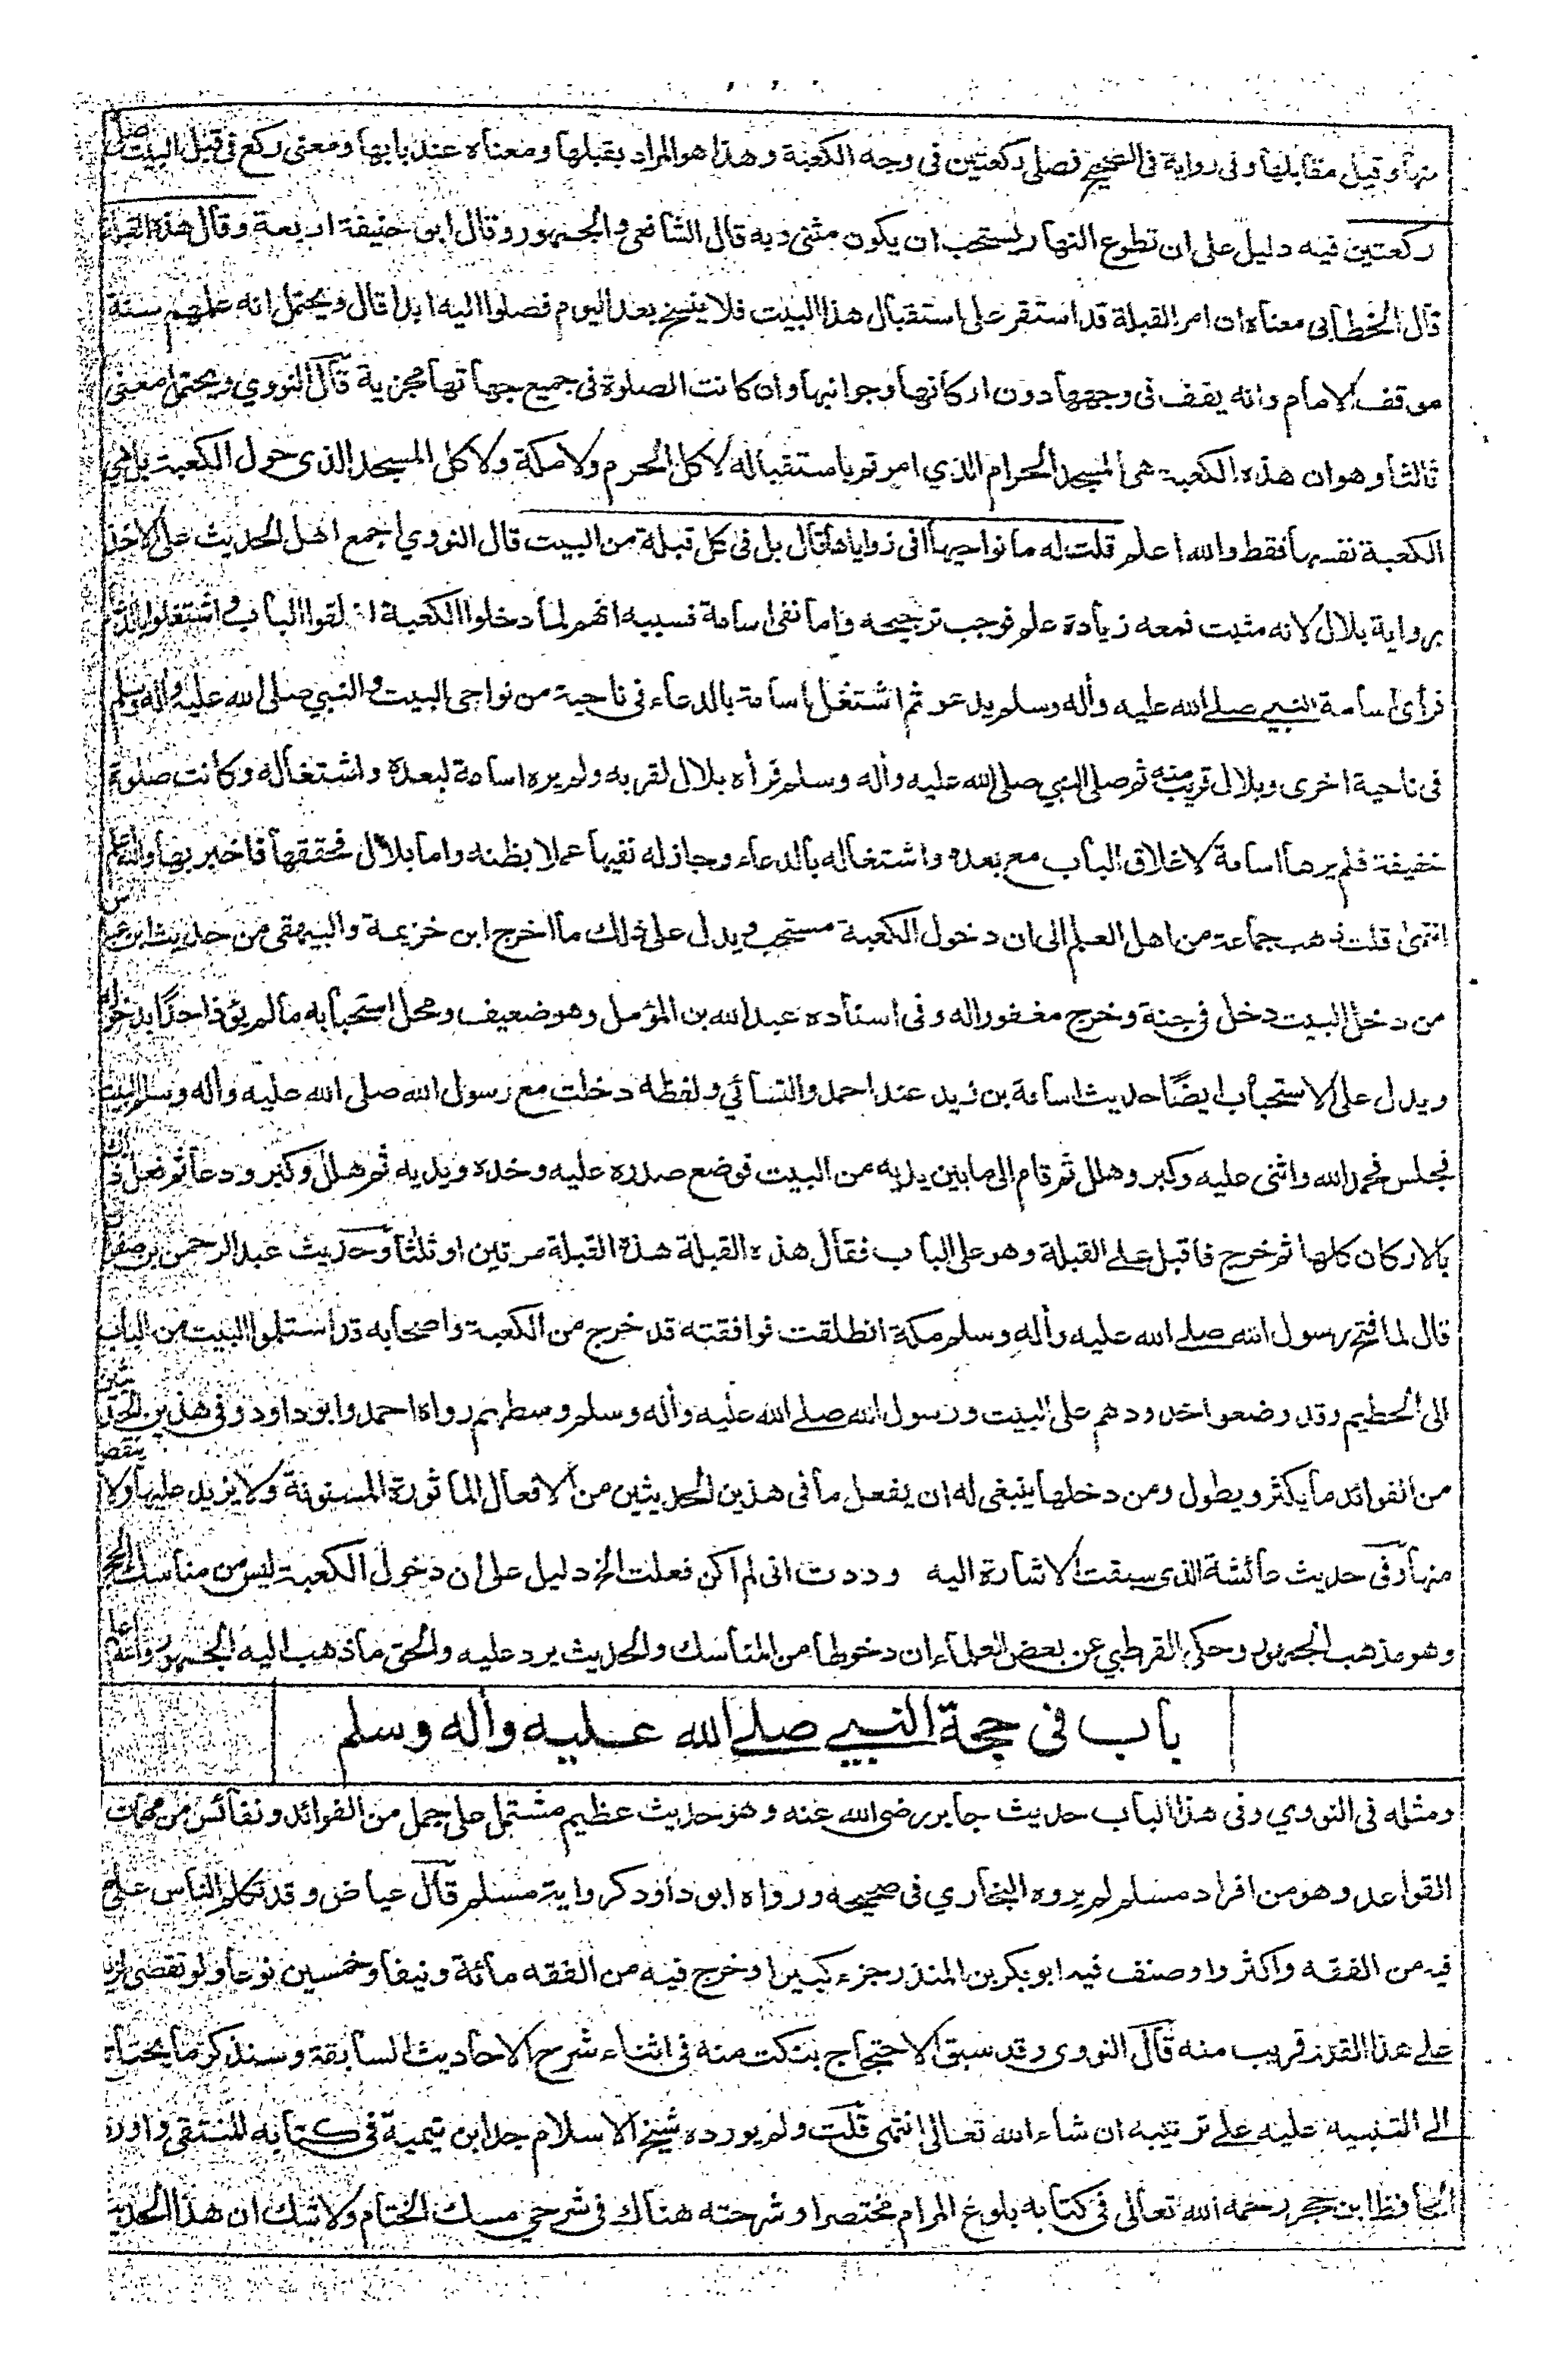 منها وقيل مقابلها وفى رواية فى الصحيح فصلى ركعتين فى وجه الكعبة وهذا هو المراد بقبلها ومعناه عند بابها ومعنى ركع فى قبل البيت
ركعتين فيه دليل على ان تطوع النهار يستحب ان يكون مثنى وبه قال الشافعى والجمهور وقال ابو حنيفة اربعة وقال هذه القبلة
قال الخطابى معناه ان امر القبلة قد استقر على استقبال هذا البيت فلا ينسخ بعد اليوم فصلوا اليه ابدا قال ويحتمل انه علمهم سنة
موقف الامام وانه يقف فى وجهها دون اركانها وجوانبها وان كانت الصلوة فى جميع جهاتها مجزية قال النووي ويحتمل معنى
ثالثا وهو ان هذه الكعبة هى المسجد الحرام الذي امرتم باستقباله لا كل الحرم ولا مكة ولا كل المسجد الذى حول الكعبة بل هى
الكعبة نفسها فقط والله اعلم قلت له ما نواحيها افى زواياها قال بل فى كل قبلة من البيت قال النووي اجمع اهل الحديث على الاخذ
برواية بلال لانه مثبت فمعه زيادة علم فوجب ترجيحه واما نفى اسامة فسببه انهم لما دخلوا الكعبة اغلقوا الباب واشتغلوا بالدعاء
فرأى اسامة النبي صلے الله عليه وأله وسلم يدعو ثم اشتغل اسامة بالدعاء فى ناحية من نواحى البيت والنبي صلى الله عليه وأله وسلم
فى ناحية اخرى وبلال قريب منه ثم صلى النبي صلى الله عليه وأله وسلم فرأه بلال لقربه ولم يره اسامة لبعده واشتغاله وكانت صلوة
خفيفة فلم يرها اسامة لاغلاق الباب مع بعده واشتغاله بالدعاء وجاز له نفيها عملا بظنه واما بلال فحققها فاخبر بها والله اعلم
انتهى قلت ذهب جماعة من اهل العلم الى ان دخول الكعبة مستحب ويدل على ذلك ما اخرج ابن خزيمة والبيهقى من حديث ابن عباس
من دخل البيت دخل فى جنة وخرج مغفورا له وفى اسناده عبد الله بن المؤمل وهو ضعيف ومحل استحبابه ما لم يؤذ احدًا بدخوله
ويدل على الاستحباب ايضًا حديث اسامة بن زيد عند احمد والنسائي ولفظه دخلت مع رسول الله صلى الله عليه وأله وسلم البيت
فجلس فحمد الله واثنى عليه وكبر وهلل ثم قام الى ما بين يديه من البيت فوضع صدره عليه وخده ويديه ثم هلل وكبر ودعا ثم فعل ذلك
بالاركان كلها ثم خرج فاقبل على القبلة وهو على الباب فقال هذه القبلة هذه القبلة مرتين او ثلثا وحديث عبد الرحمن بن صفوان
قال لما فتح رسول الله صلے الله عليه وأله وسلم مكة انطلقت فوافقته قد خرج من الكعبة واصحابه قد استلموا البيت من الباب
الى الحطيم وقد وضعوا خدودهم على البيت ورسول الله صلے الله عليه وأله وسلم وسطهم رواه احمد وابو داود وفى هذين الحديثين
من الفوائد ما يكثر ويطول ومن دخلها ينبغى له ان يفعل ما فى هذين الحديثين من الافعال المأثورة المسنونة ولا يزيد عليها ولا ينقص
منها وفى حديث عائشة الذى سبقت الاشارة اليه وددت انى لم اكن فعلت الخ دليل على ان دخول الكعبة ليس من مناسك الحج
وهو مذهب الجمهور وحكى القرطبي عن بعض العلماء ان دخولها من المناسك والحديث يرد عليه والحق ما ذهب اليه الجمهور والله اعلم
باب فى حجة النبي صلے الله عليه وأله وسلم
ومثله فى النووي وفى هذا الباب حديث جابر رضى الله عنه وهو حديث عظيم مشتمل على جمل من الفوائد ونفائس من مهمات
القواعد وهو من افراد مسلم لم يروه البخاري فى صحيحه ورواه ابو داود كرواية مسلم قال عياض وقد تكلم الناس على ما
فيه من الفقه واكثروا وصنف فيه ابو بكر بن المنذر جزء كبيرا وخرج فيه من الفقه مائة ونيفا وخمسين نوعا ولو تقصى لزيد
على هذا القدر قريب منه قال النووى وقد سبق الاحتجاج بنكت منه فى اثناء شرح الاحاديث السابقة وسنذكر ما يحتاج
الى التنبيه عليه على ترتيبه ان شاء الله تعالى انتهى قلت ولم يورده شيخ الاسلام جد ابن تيمية فى كتابه المنتقى واورده
الحافظ ابن حجر رحمه الله تعالى فى كتابه بلوغ المرام مختصرا وشرحته هناك فى شرحى مسك الختام ولا شك ان هذا الحديث